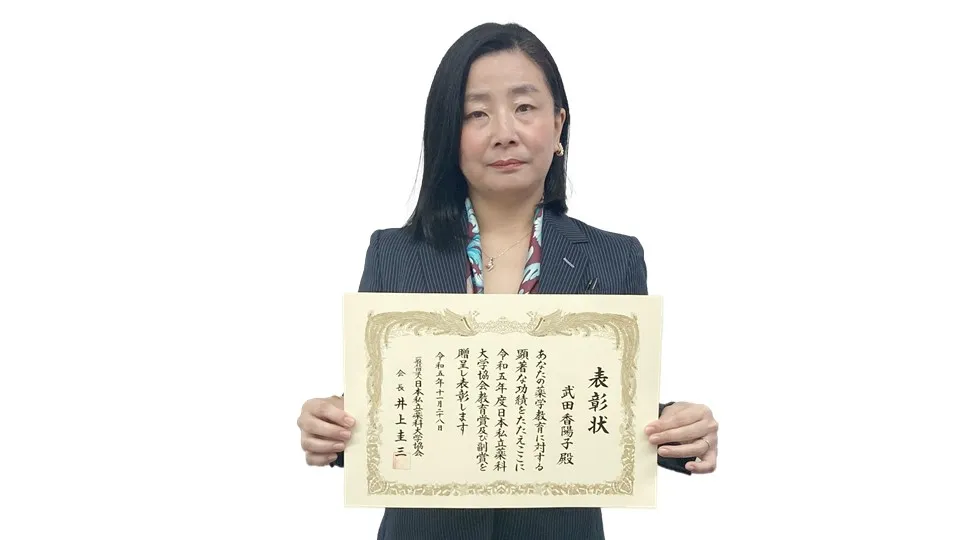 表彰状
武田香陽子 殿
あなたの薬学教育に対する
顕著な功績をたたえここに
令和五年度日本私立薬科
大学協会教育賞及び副賞を
贈呈し表彰します
令和五年十一月二十八日
一般社団法人日本私立薬科大学協会
会長 井上圭三